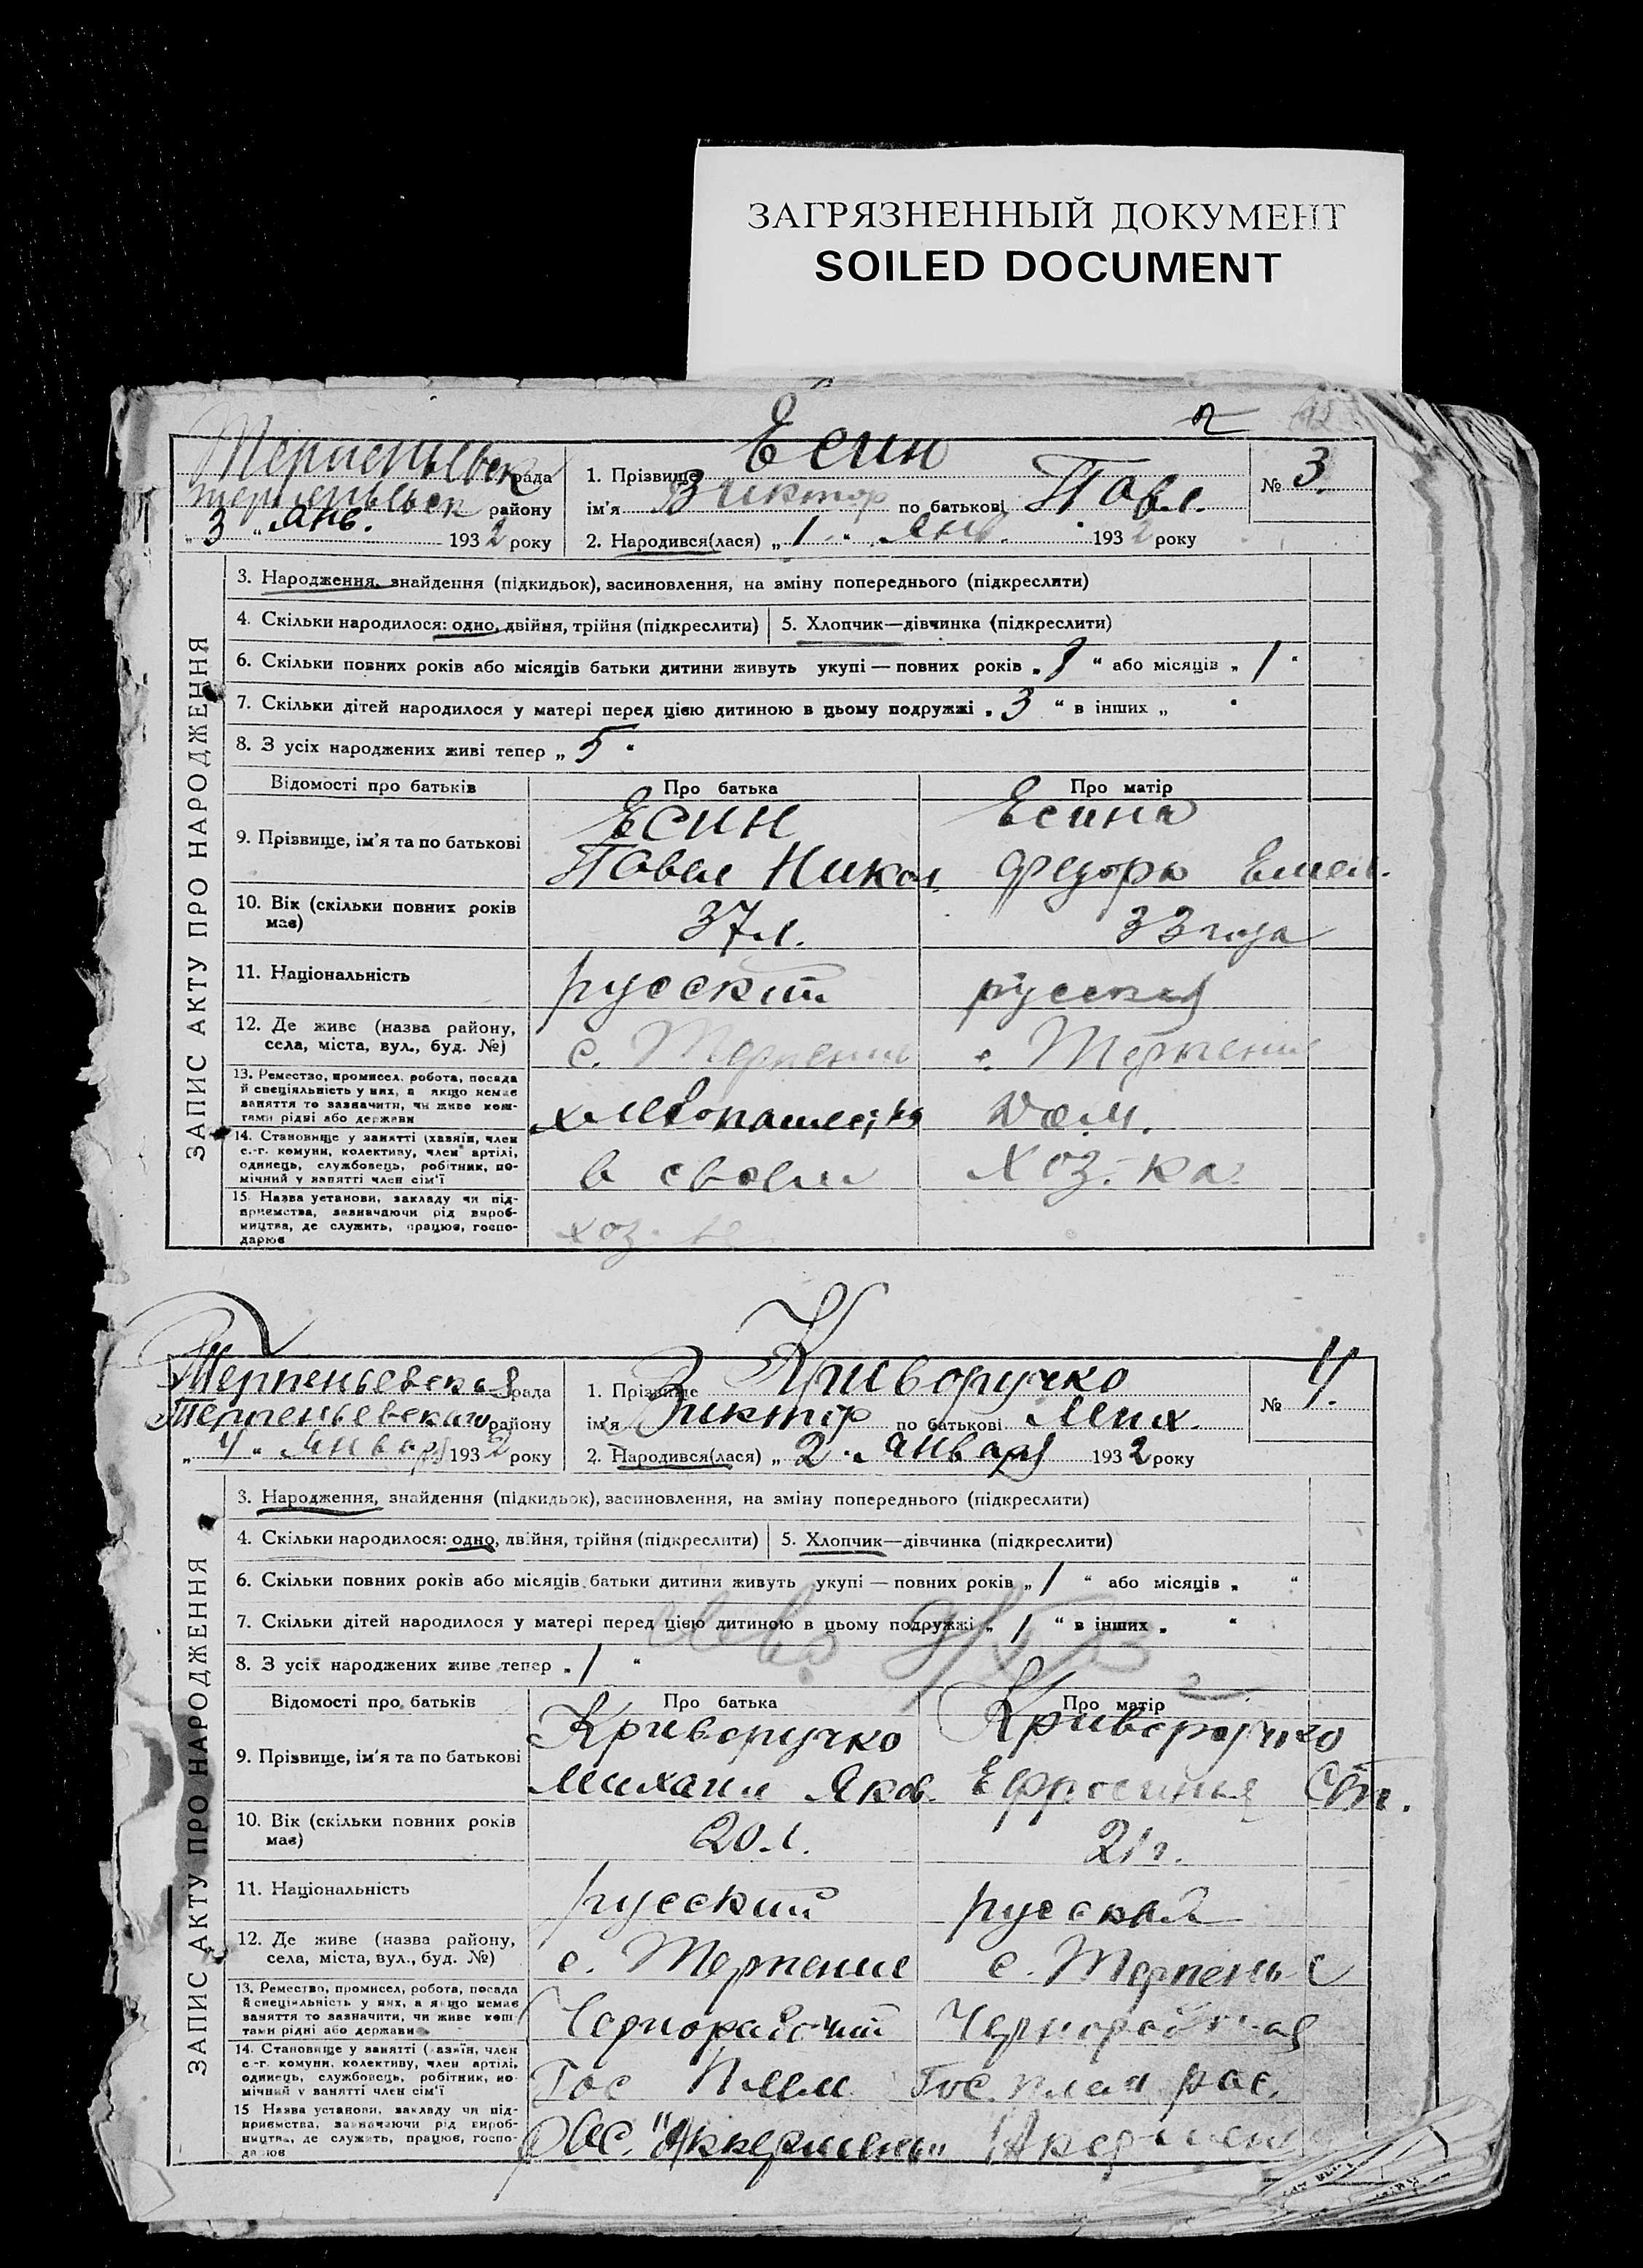 ЗАГРЯЗНЕННЫЙ ДОКУМЕНТ
SOILED DOCUMENT
2
Терпеньевск рада
Терпеньевск району
„ 3 “ янв. 1932 року
1. Прізвище Есин
ім'я Виктор по батькові Павл.
2. Народився(лася) „ 1 “ янв. 1932 року
№ 3.
ЗАПИС АКТУ ПРО НАРОДЖЕННЯ
3. Народження, знайдення (підкидьок), засиновлення, на зміну попереднього (підкреслити)
4. Скільки народилося: одно, двійня, трійня (підкреслити) 5. Хлопчик—дівчинка (підкреслити)
6. Скільки повних років або місяців батьки дитини живуть укупі — повних років „ “ або місяців „ 1 “
7. Скільки дітей народилося у матері перед цією дитиною в цьому подружжі „ 3 “ в інших „ “
8. З усіх народжених живі тепер „ 5 “
Відомості про батьків Про батька Про матір
9. Прізвище, ім'я та по батькові
Есин Есина
Павел Никол. Федора Емел.
10. Вік (скільки повних років має) 37 л. 33 года
11. Національність русский русская
12. Де живе (назва району, села, міста, вул., буд. №) с. Терпение с. Терпение
13. Ремество, промисел, робота, посада й спеціяльність у них, а якщо немає заняття то зазначити, чи живе коштами рідні або держави
Дом.
14. Становище у занятті (хазяїн, член с.-г. комуни, колективу, член артілі, одинець, службовець, робітник, помічний у занятті член сім'ї
в своем хоз-ка
15. Назва установи, закладу чи підприємства, зазначаючи рід виробництва, де служить, працює, господарює
хоз-ве
Терпеньевская рада
Терпеньевского району
„ 4 “ Января 1932 року
1. Прізвище Криворучко
ім'я Виктор по батькові Мих.
2. Народився(лася) „ 2 “ января 1932 року
№ 4.
ЗАПИС АКТУ ПРО НАРОДЖЕННЯ
3. Народження, знайдення (підкидьок), засиновлення, на зміну попереднього (підкреслити)
4. Скільки народилося: одно, двійня, трійня (підкреслити) 5. Хлопчик—дівчинка (підкреслити)
6. Скільки повних років або місяців батьки дитини живуть укупі — повних років „ 1 “ або місяців „ “
7. Скільки дітей народилося у матері перед цією дитиною в цьому подружжі „ 1 “ в інших „ “
8. З усіх народжених живе тепер „ 1 “
Відомості про батьків Про батька Про матір
9. Прізвище, ім'я та по батькові
Криворучко Криворучко
Михаил Яков. Ефросиния
10. Вік (скільки повних років має) 20 л. 21 г.
11. Національність русский русская
12. Де живе (назва району, села, міста, вул., буд. №) с. Терпение с. Терпенье
13. Ремество, промисел, робота, посада й спеціяльність у них, а якщо немає заняття то зазначити, чи живе коштами рідні або держави
Чернорабочий Чернорабочая
14. Становище у занятті (хазяїн, член с.-г. комуни, колективу, член артілі, одинець, службовець, робітник, помічний у занятті член сім'ї
Гос Плем Гос. плем рас.
15 Назва установи, закладу чи підприємства, зазначаючи рід виробництва, де служить, працює, господарює
рас. "Аккермень"